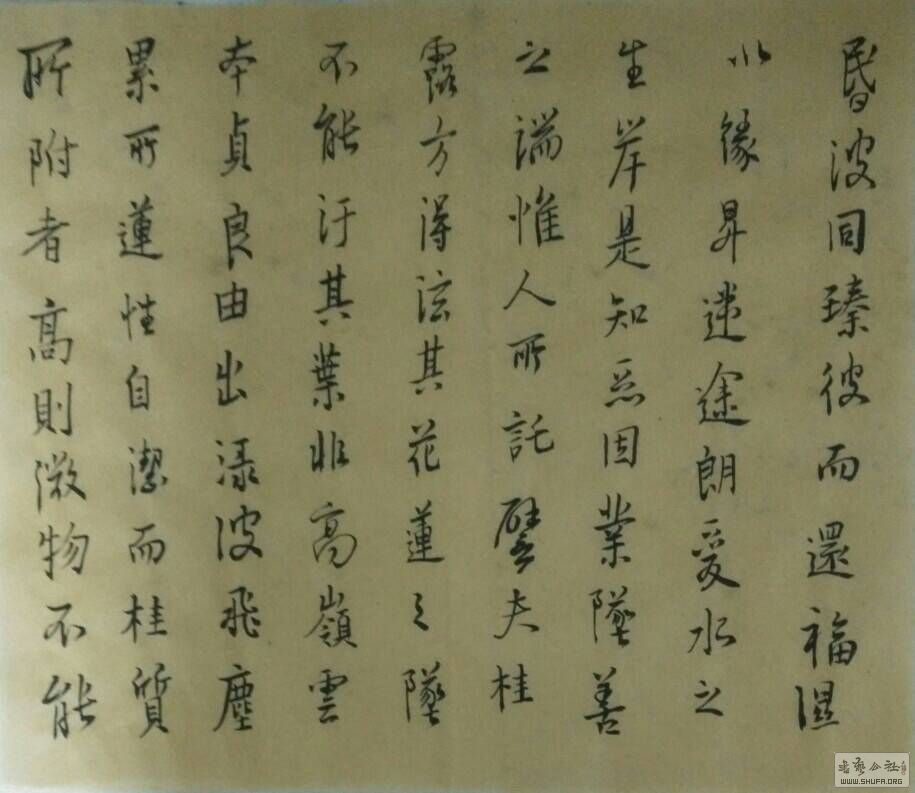 昏波同臻彼而還福濕
以緣昇迷途朗愛水之
生岸是知惡因業墜善
之端惟人所託譬夫桂
露方得泫其花蓮之墜
不能汙其葉非高嶺雲
本貞良由出淥波飛塵
累所蓮性自潔而桂質
所附者高則微物不能
书艺公社
WWW.SHUFA.ORG